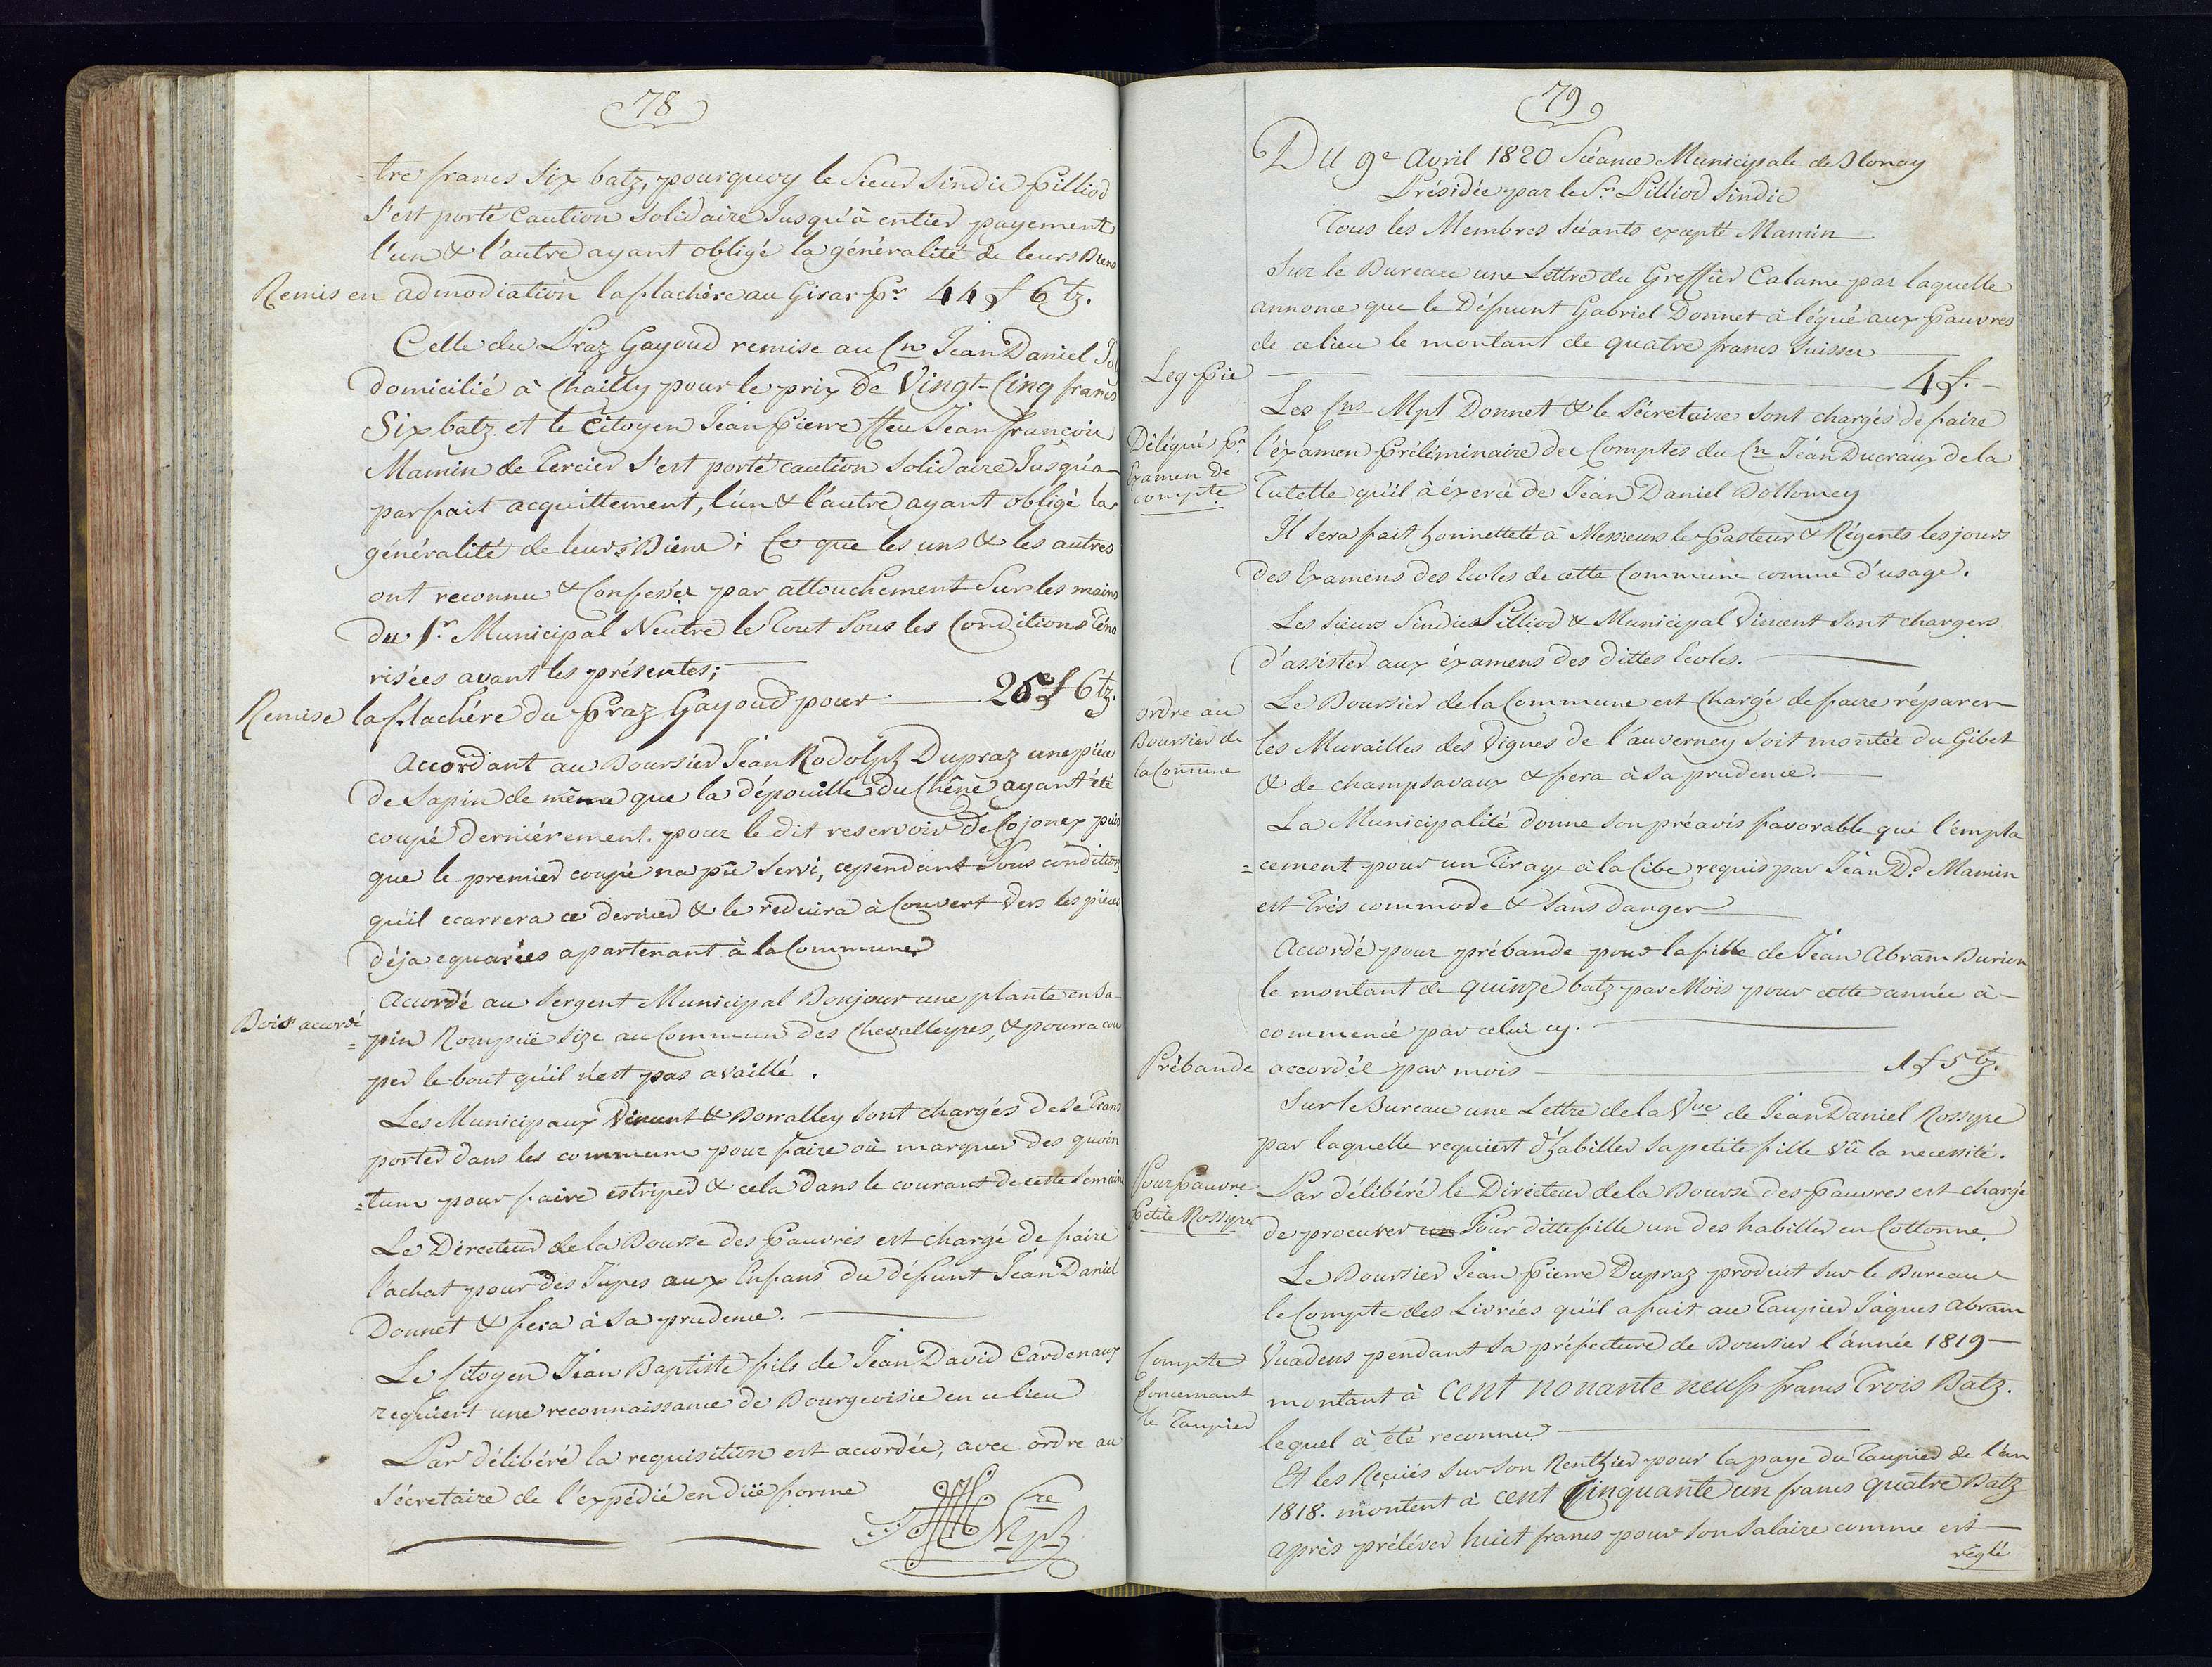 78
-tre francs Six batz, pourquoy le Sieur Sindic Pilliod
S'est porté Caution Solidaire Jusqu'à entier payement
l'un & l'autre ayant obligé la généralité de leurs Biens
Remis en admodiation la flachére au Girar pr. 44 f 6 tz.
Celle du Praz Gayoud remise au Cn Jean Daniel
domicilié à Chailly pour le prix de Vingt-Cinq francs
Six batz. et le Citoyen Jean Pierre ffeu Jean françois
Mamin de Tercier S'est porté caution Solidaire Jusqu'a
parfait acquittement, l'un & l'autre ayant obligé la
généralité de leurs Biens; Ce que les uns & les autres
ont reconnu & Confessée par attouchement Sur les mains
du 1r. Municipal Neutre le Tout Sous les Conditions Téno
risées avant les présentes;
Remise la flachére du Praz Gayoud pour 25 f 6 tz.
Accordant au Boursier Jean Rodolph Dupraz une piéce
de Sapin de même que la dépouille du Chêne ayant été
coupé derniérement. pour le dit reservoir de Cojonex puis
que le premier coupé na pû Servi, cependant Sous condition
qu'il ecarrera ce dernier & le reduira à Couvert vers les piéces
déja equarées apartenant à la Commune
Bois accordé
Accordé au Sergent Municipal Bonjour une plante en Sa-
=pin Rompüe Size au Commun des Chevalleyres, & pourra cou
per le bout qu'il n'est pas availlé.
Les Municipaux Vincent & Borralley Sont chargés de Se Trans
porter dans les commun pour faire où marquer des quoin
=tum pour faire estriper & cela dans le courant de cette Semaine
Le Directeur de la Bourse des Pauvres est chargé de faire
l'achat pour des Jupes aux Enfans du défunt Jean Daniel
Donnet & fera à Sa prudence.
Le Citoyen Jean Baptiste fils de Jean David Cardenaux
requiert une reconnaissance de Bourgeoisie en ce lieu
Par délibéré la requisition est accordée, avec ordre au
Sécretaire de l'expédié en düe forme
79
Du 9e Avril 1820 Séance Municipale de Blonay
Présidée par le Sr. Pilliod Sindic
Tous les Membres Séants excepté Mamin
Sur le Bureau une Lettre du Greffier Calame par laquelle
annonce que le Défunt Gabriel Donnet à légué aux Pauvres
de ce lieu le montant de quatre francs Suisse
Leg Pie 4 f.
Les Cns Mpl Donnet & le Sécretaire Sont chargés de faire
Délégués pr.
Examen de
compte
l'éxamen Préliminaire des Comptes du Cn Jéan Ducraux de la
Tutelle qu'il à éxercé de Jéan Daniel Dollomey
Il Sera fait honnetteté à Messieurs le Pasteur & Régents les jours
des Examens des Ecoles de cette Commune comme d'usage.
Les Sieurs Sindic Pilliod & Municipal Vincent Sont chargers
d'assister aux éxamens des dittes Ecoles.
ordre au
Boursier de
la Comune
Le Boursier de la Commune est Chargé de faire réparer
les Murailles des Vignes de l'auverney Soit montée du Gibet
& de champsavaux & fera à Sa prudence.
La Municipalité donne Son préavis favorable que l'empla
=cement pour un Tirage à la Cibe requis par Jéan Dd. Mamin
est Très commode & Sans danger
Accordé pour prébande pour la fille de Jéan Abram Burion
le montant de quinze batz par Mois pour cette année à-
commencé par celui cy.
Prébande accordée par mois 1 f 5 tz.
Sur le Bureau une Lettre de la Vve de Jéan Daniel Rossyre
par laquelle requiert d'habiller Sa petite fille Vû la necessité.
Pour pauvre
petite Rossyre
Par délibéré le Directeur de la Bourse des Pauvres est chargé
de procurer un Pour ditte fille un des habiller en Cottonne.
Le Boursier Jean Pierre Dupraz produit Sur le Bureau
le Compte des Livrées qu'il a fait au Taupier Jâques Abram
Compte
Concernant
le Taupier
Vuadens pendant Sa préfecture de Boursier l'année 1819
montant à cent nonante neuf francs Trois Batz.
lequel à été reconnu
Et les Reçües Sur Son Renthier pour la paye du Taupier de l'an
1818. montent à cent Cinquante un francs quatre Batz
après préléver huit francs pour Son Salaire comme est
réglé